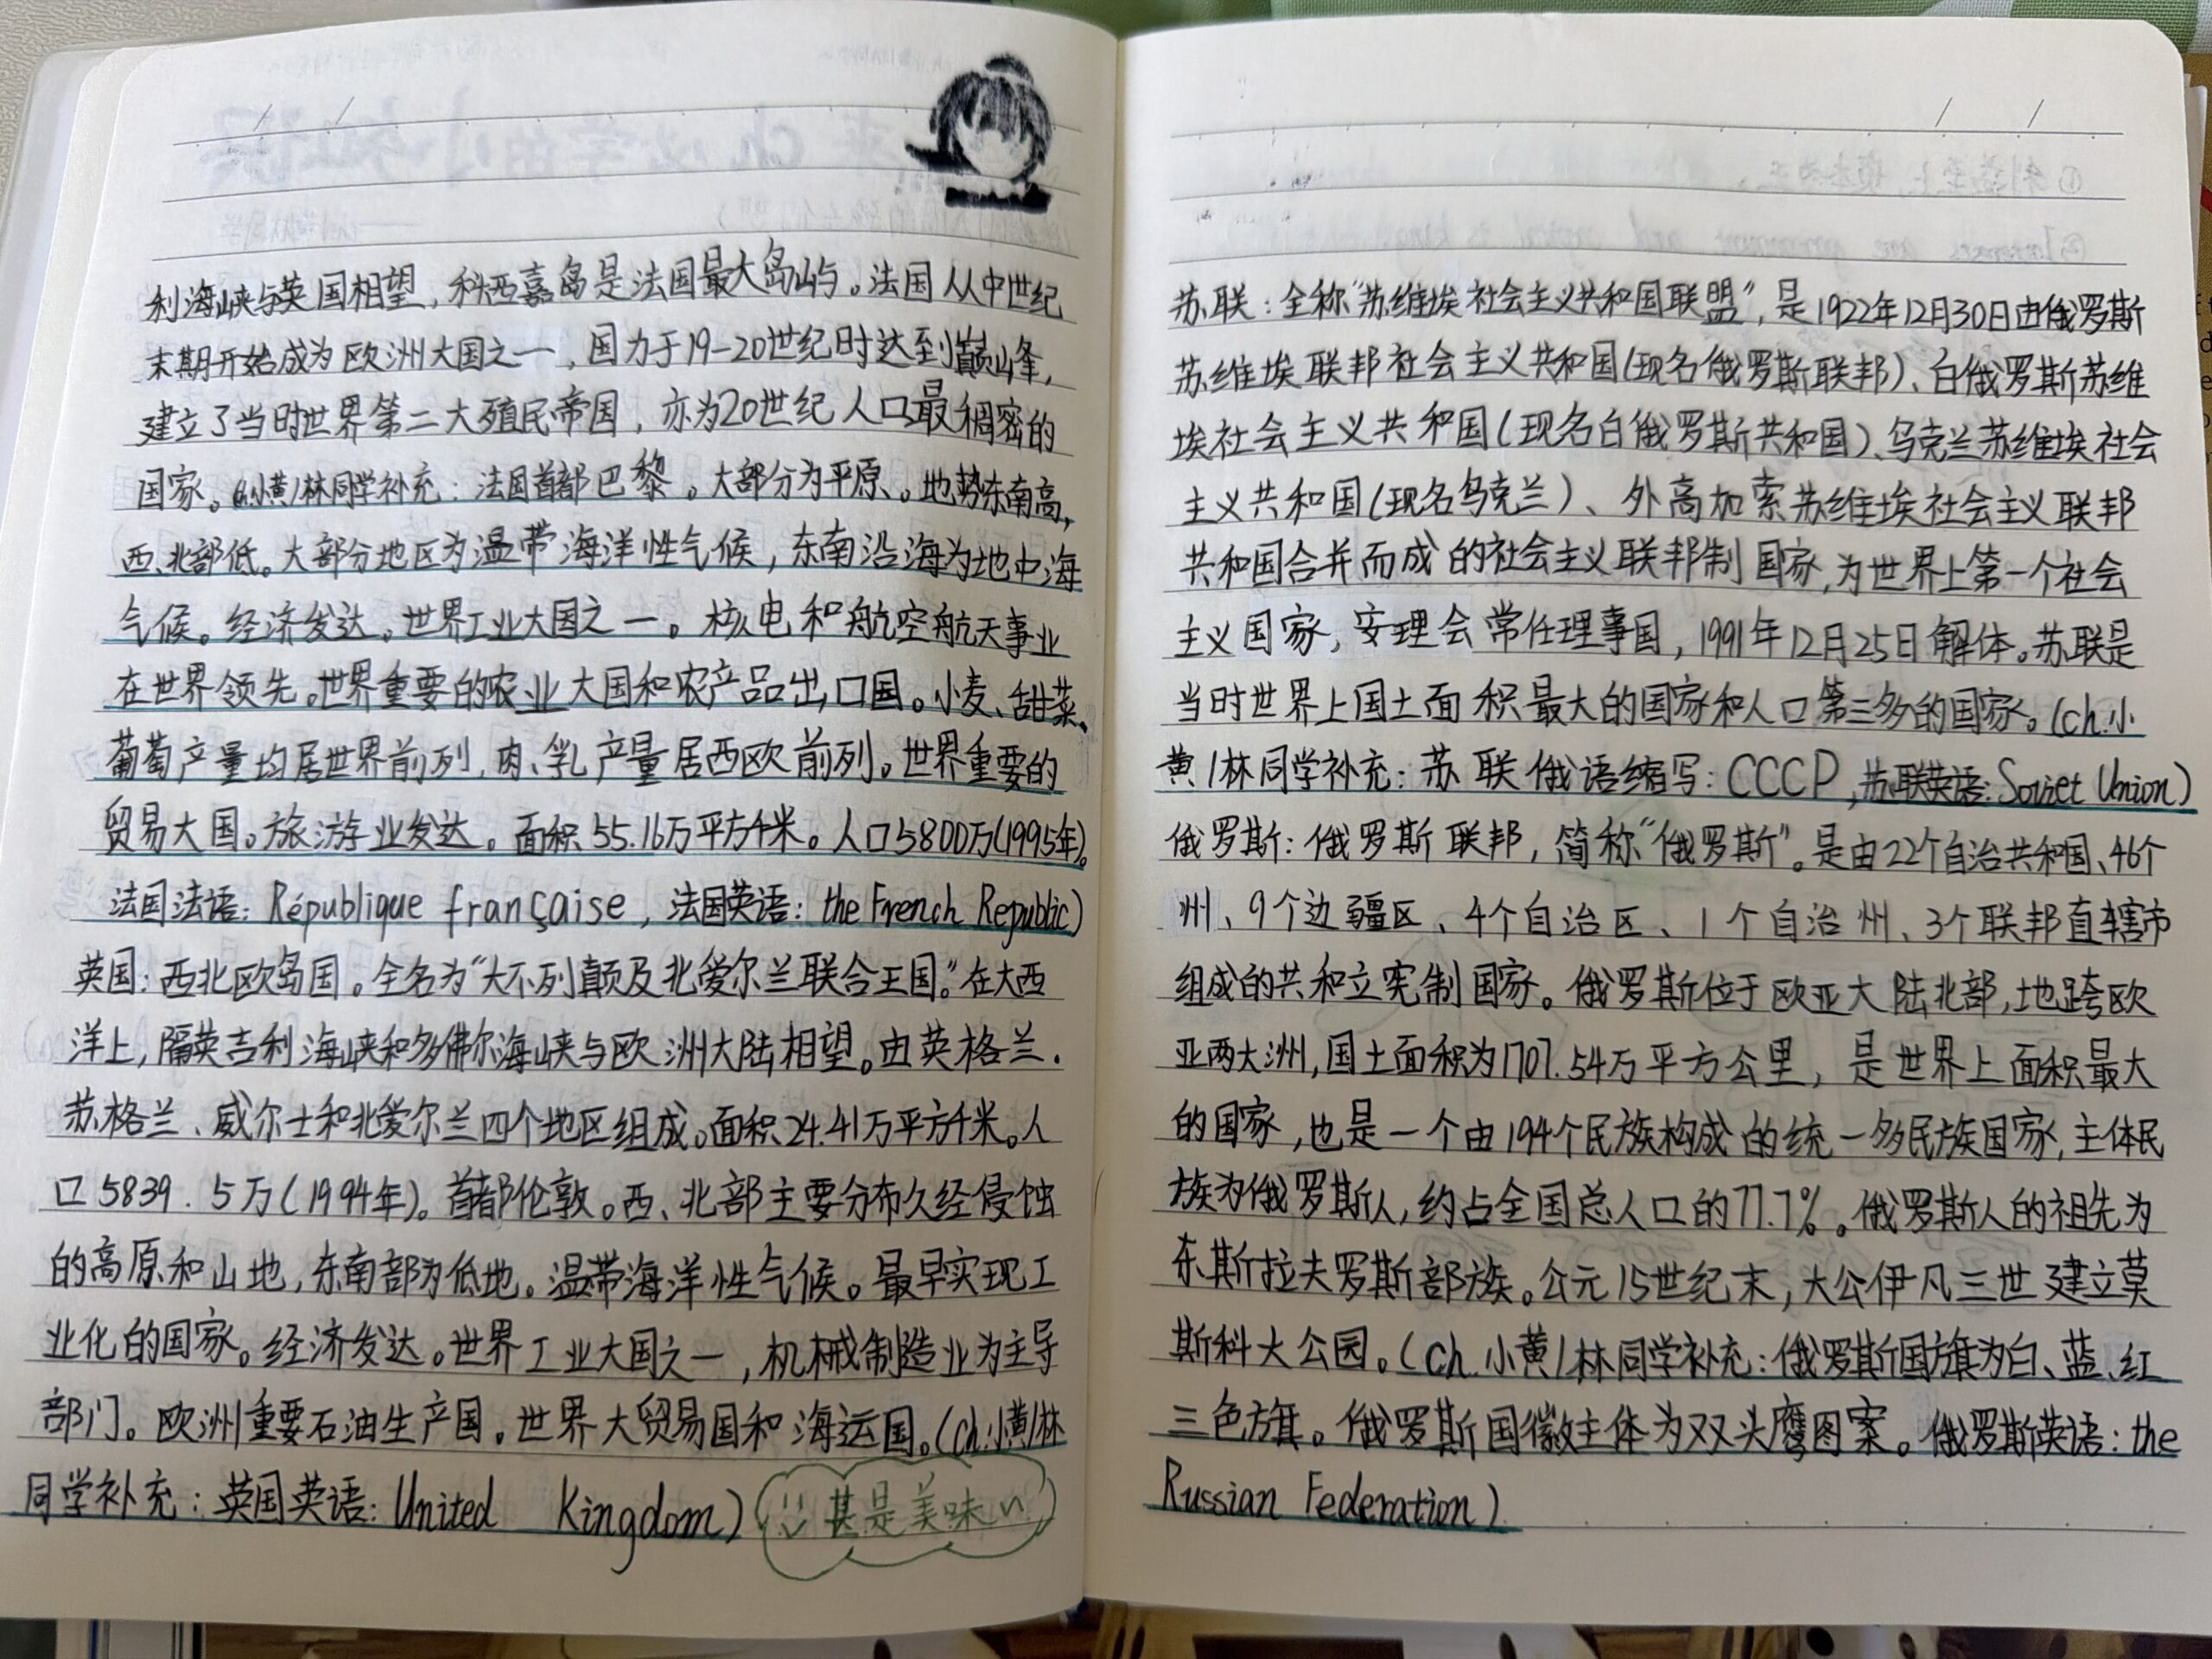 利海峡与英国相望，科西嘉岛是法国最大岛屿。法国从中世纪
末期开始成为欧洲大国之一，国力于19-20世纪时达到巅峰，
建立了当时世界第二大殖民帝国，亦为20世纪人口最稠密的
国家。(ch.小黄/林同学补充：法国首都巴黎。大部分为平原。地势东南高，
西、北部低。大部分地区为温带海洋性气候，东南沿海为地中海
气候。经济发达。世界工业大国之一。核电和航空航天事业
在世界领先。世界重要的农业大国和农产品出口国。小麦、甜菜、
葡萄产量均居世界前列，肉、乳产量居西欧前列。世界重要的
贸易大国。旅游业发达。面积55.16万平方千米。人口5800万(1995年)。
法国法语：République française，法国英语：the French Republic)
英国：西北欧岛国。全名为“大不列颠及北爱尔兰联合王国。”在大西
洋上，隔英吉利海峡和多佛尔海峡与欧洲大陆相望。由英格兰.
苏格兰、威尔士和北爱尔兰四个地区组成。面积24.41万平方千米。人
口5839.5万(1994年)。首都伦敦。西、北部主要分布久经侵蚀
的高原和山地，东南部为低地。温带海洋性气候。最早实现工
业化的国家。经济发达。世界工业大国之一，机械制造业为主导
部门。欧洲重要石油生产国。世界大贸易国和海运国。(ch.小黄/林
同学补充：英国英语：United Kingdom)
甚是美味
苏联：全称“苏维埃社会主义共和国联盟”，是1922年12月30日由俄罗斯
苏维埃联邦社会主义共和国(现名俄罗斯联邦)、白俄罗斯苏维
埃社会主义共和国(现名白俄罗斯共和国)、乌克兰苏维埃社会
主义共和国(现名乌克兰)、外高加索苏维埃社会主义联邦
共和国合并而成的社会主义联邦制国家，为世界上第一个社会
主义国家，安理会常任理事国，1991年12月25日解体。苏联是
当时世界上国土面积最大的国家和人口第三多的国家。(ch.小
黄/林同学补充：苏联俄语缩写：CCCP，苏联英语：Soviet Union)
俄罗斯：俄罗斯联邦，简称“俄罗斯”。是由22个自治共和国、46个
州、9个边疆区、4个自治区、1个自治州、3个联邦直辖市
组成的共和立宪制国家。俄罗斯位于欧亚大陆北部，地跨欧
亚两大洲，国土面积为1707.54万平方公里，是世界上面积最大
的国家，也是一个由194个民族构成的统一多民族国家，主体民
族为俄罗斯人，约占全国总人口的77.7%。俄罗斯人的祖先为
东斯拉夫罗斯部族。公元15世纪末，大公伊凡三世建立莫
斯科大公园。(ch.小黄/林同学补充：俄罗斯国旗为白、蓝、红
三色旗。俄罗斯国徽主体为双头鹰图案。俄罗斯英语：the
Russian Federation)